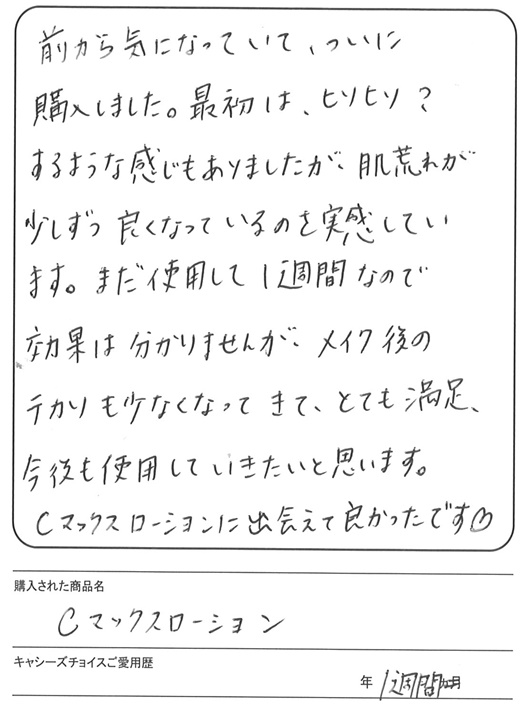 前から気になっていて、ついに
購入しました。最初は、ヒリヒリ?
するような感じもありましたが、肌荒れが
少しずつ良くなっているのを実感してい
ます。まだ使用して1週間なので
効果は分かりませんが、メイク後の
テカリも少なくなってきて、とても満足、
今後も使用していきたいと思います。
Cマックスローションに出会えて良かったです♡
購入された商品名
Cマックスローション
キャシーズチョイスご愛用歴
年 1週間